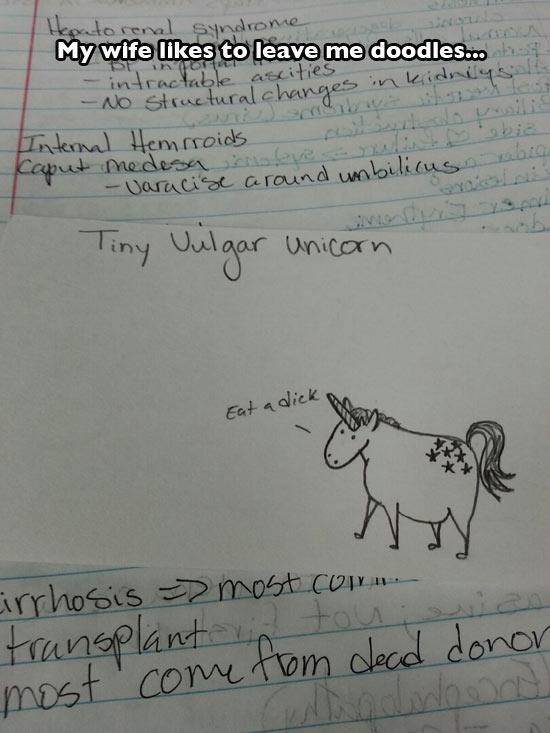 Hepatorenal syndrome
My wife likes to leave me doodles...
- intractable ascities
- No structural changes in kidnilys
Internal Hemrroids
Caput medesa
- Varacise around umbilicus
Tiny Vulgar Unicorn
Eat a dick
irrhosis => most com
transplant
most come from dead donor